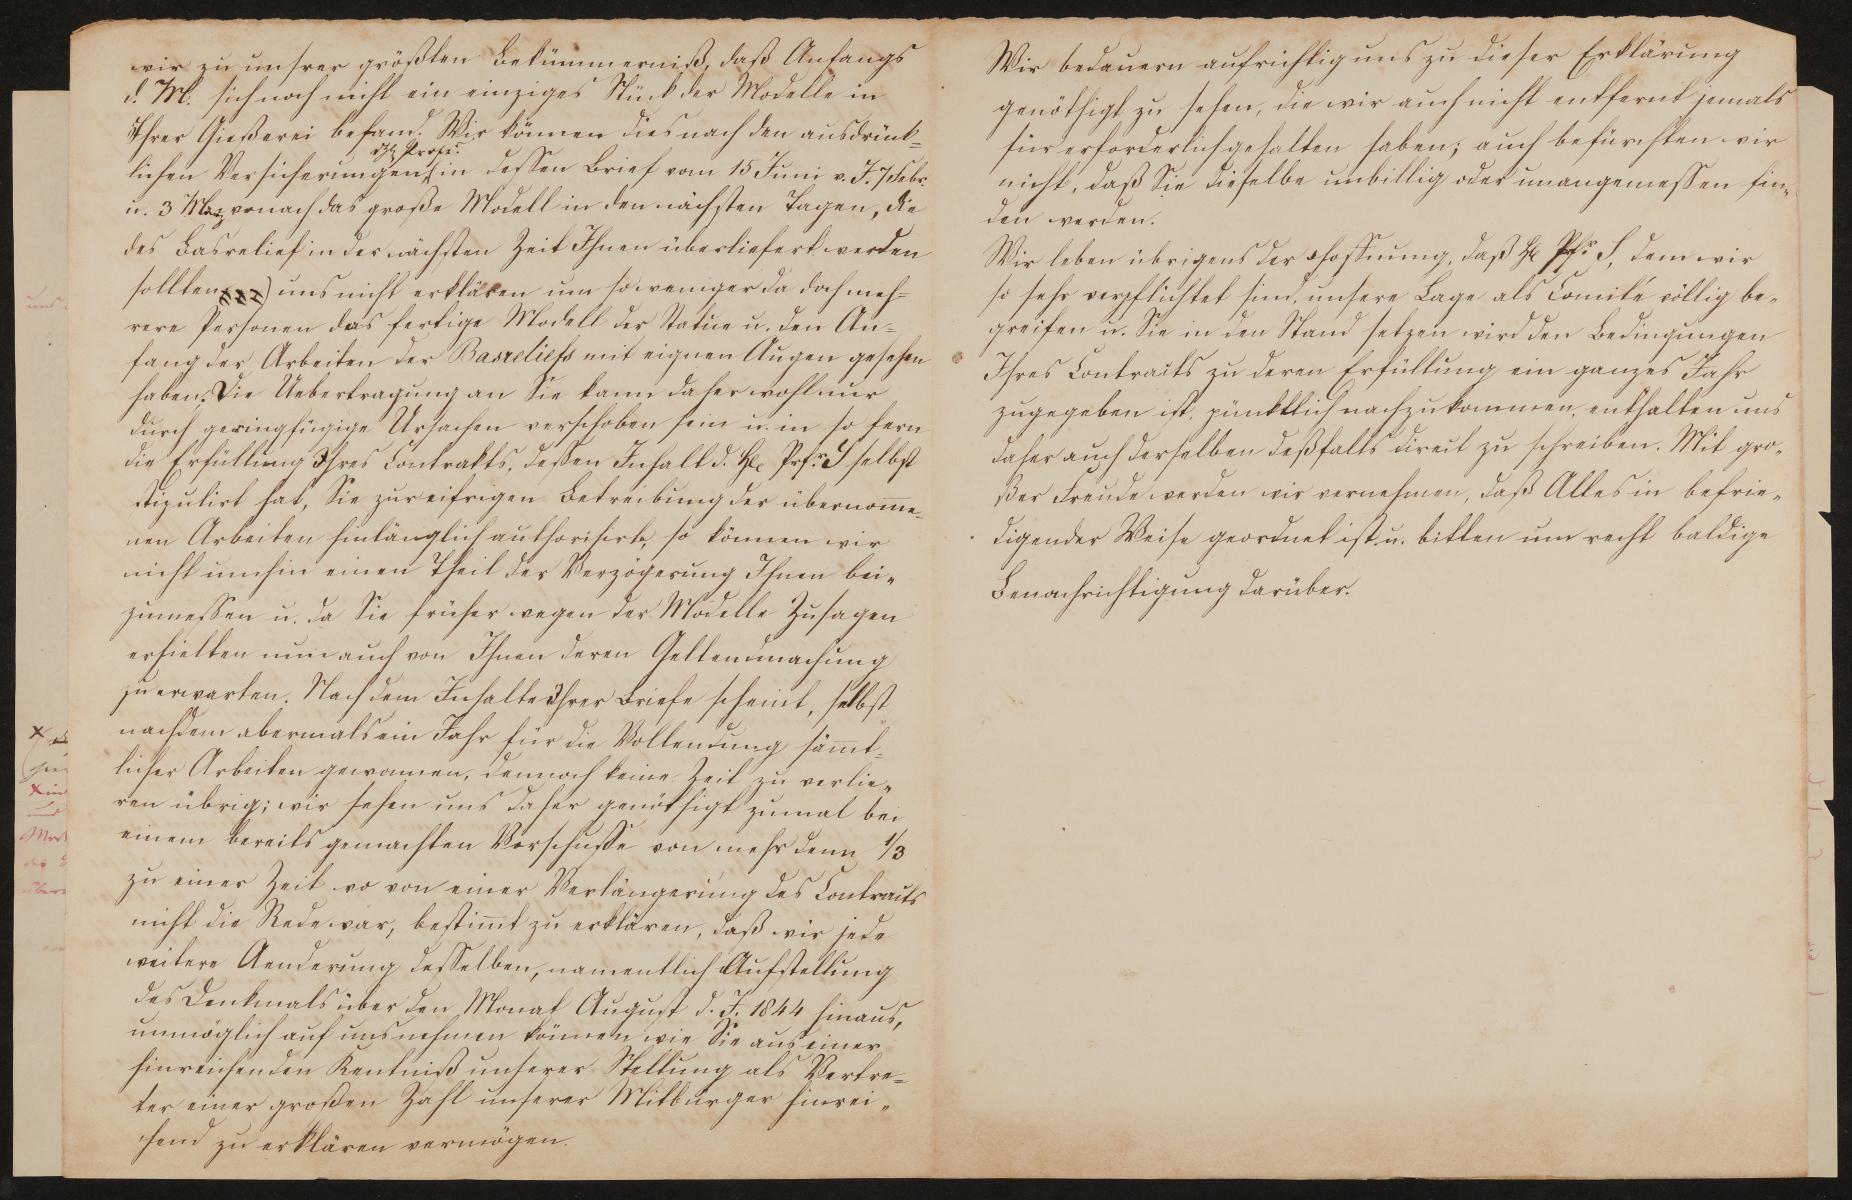 wir zu unsrer größten Bekümmerniß, daß Anfangs
d. M. sich noch nicht ein einziges Stück der Modelle in
Ihrer Gießerei befand. Wir können dies nach den ausdrück=
lichen Versicherungen
in dessen Brief vom 15 Juni v. J. 7 Febr.
u. 3 März wonach das große Modell in den nächsten Tagen, die
des Basrelief in der nächsten Zeit Ihnen überliefert werden
sollten uns nicht erklären um so weniger da doch meh=
rere Personen das fertige Modell der Statue u. den An=
fang der Arbeiten der Basreliefs mit eignen Augen gesehen
haben. Die Uebertragung an Sie kann daher wohl nur
durch geringfügige Ursachen verschoben sein u. in so fern
die Erfüllung Ihres Contrakts, dessen Inhalt d. H. Prfr. S selbst
stipulirt hat, Sie zur eifrigen Betreibung der übernom̅e=
nen Arbeiten hinlänglich authorisirte, so können wir
nicht umhin einen Theil der Verzögerung Ihnen bei=
zumessen u. da Sie früher wegen der Modelle Zusagen
erhielten nun auch von Ihnen deren Geltendmachung
zu erwarten. Nach dem Inhalte Ihrer Briefe scheint, selbst
nachdem abermals ein Jahr für die Vollendung sämt=
licher Arbeiten gewonnen, dennoch keine Zeit zu verlie=
ren übrig; wir sehen uns daher genöthigt zumal bei
einem bereits gemachten Vorschusse von mehr denn 1/3
zu einer Zeit wo von einer Verlängerung des Contracts
nicht die Rede war, bestim̅t zu erklären, daß wir jede
weitere Aenderung desselben, namentlich Aufstellung
des Denkmals über den Monat August d. J. 1844 hinaus,
unmöglich auf uns nehmen können wie Sie aus einer
hinreichenden Kentniß unserer Stellung als Vertre=
ter einer großen Zahl unserer Mitbürger hinrei=
chend zu erklären vermögen.
Wir bedauern aufrichtig uns zu dieser Erklärung
genöthigt zu sehen, die wir auch nicht entfernt jemals
für erforderlich gehalten haben; auch befürchten wir
nicht, daß Sie dieselbe unbillig oder unangemessen fin=
den werden.
Wir leben übrigens der Hoffnung, daß H. Pfr. S, dem wir
so sehr verpflichtet sind, unsere Lage als Comité völlig be=
greifen u. Sie in den Stand setzen wird den Bedingungen
Ihres Contracts zu deren Erfüllung ein ganzes Jahr
zugegeben ist, pünktlich nachzukommen, enthalten uns
daher auch derselben deßfalls direct zu schreiben. Mit gro=
ßer Freude werden wir vernehmen, daß Alles in befrie=
digender Weise geordnet ist u. bitten um recht baldige
Benachrichtigung darüber.